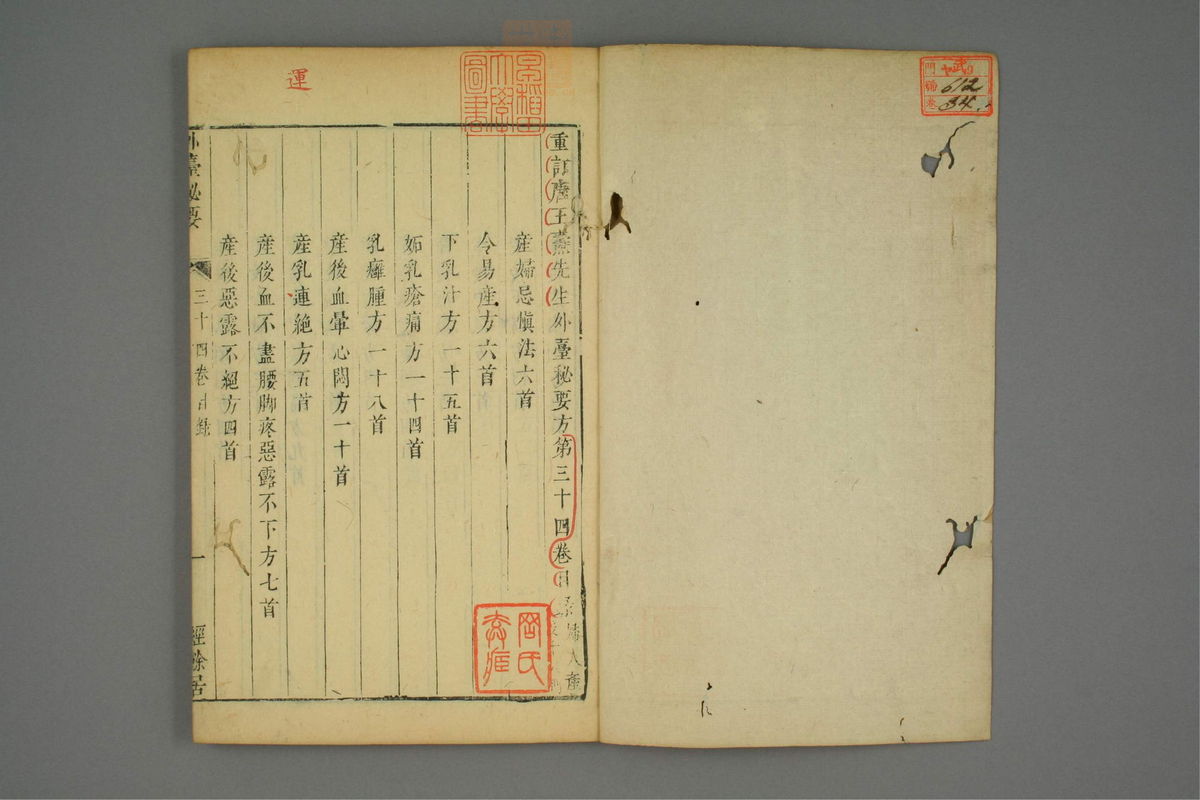 門 武9
號 612
卷 34
早稲田大學圖書
運
重訂唐王燾先生外臺秘要方第三十四卷目 婦人產
產婦忌愼法六首
令易產方六首
下乳汁方一十五首
妬乳瘡痛方一十四首
乳癰腫方一十八首
產後血暈心悶方一十首
產乳運絶方五首
產後血不盡腰脚疼惡露不下方七首
產後惡露不絕方四首
外臺秘要 三十四卷目錄 一 經餘居